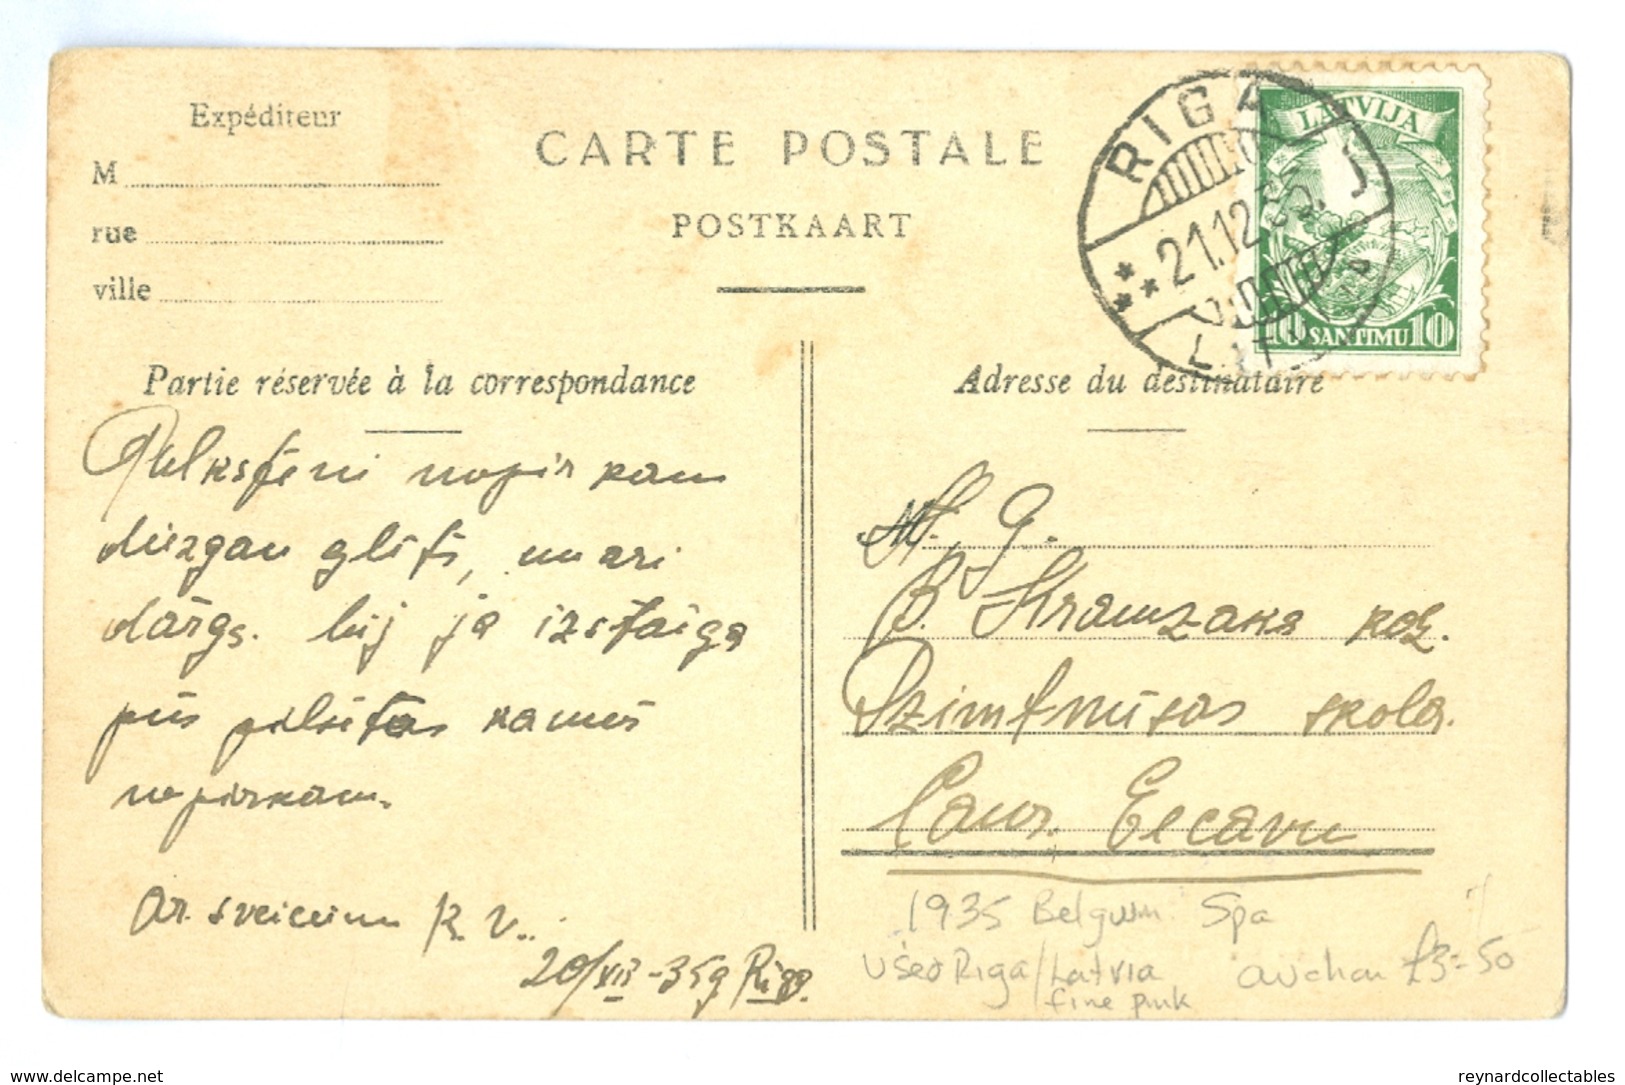 Expéditeur
M
rue
ville
CARTE POSTALE
POSTKAART
RIGA
21.12.35. J
LATVIJA
10 SANTIMU 10
Partie réservée à la correspondance
Adresse du destinataire
Pulksteni nopirkam
diezgan glīti, un ari
dārgs. bij ja izstaiga
pus pilsētas kamēr
nopirkam.
Ar sveicienu K. V..
20/XII-35g Rīga.
G.
B. Kramzaka kdz.
Dzimtmisas skola.
Caur. Eecavu
1935 Belgium Spa
Used Riga/Latvia
fine pmk
£3=50
delcampe.net
reynardcollectables